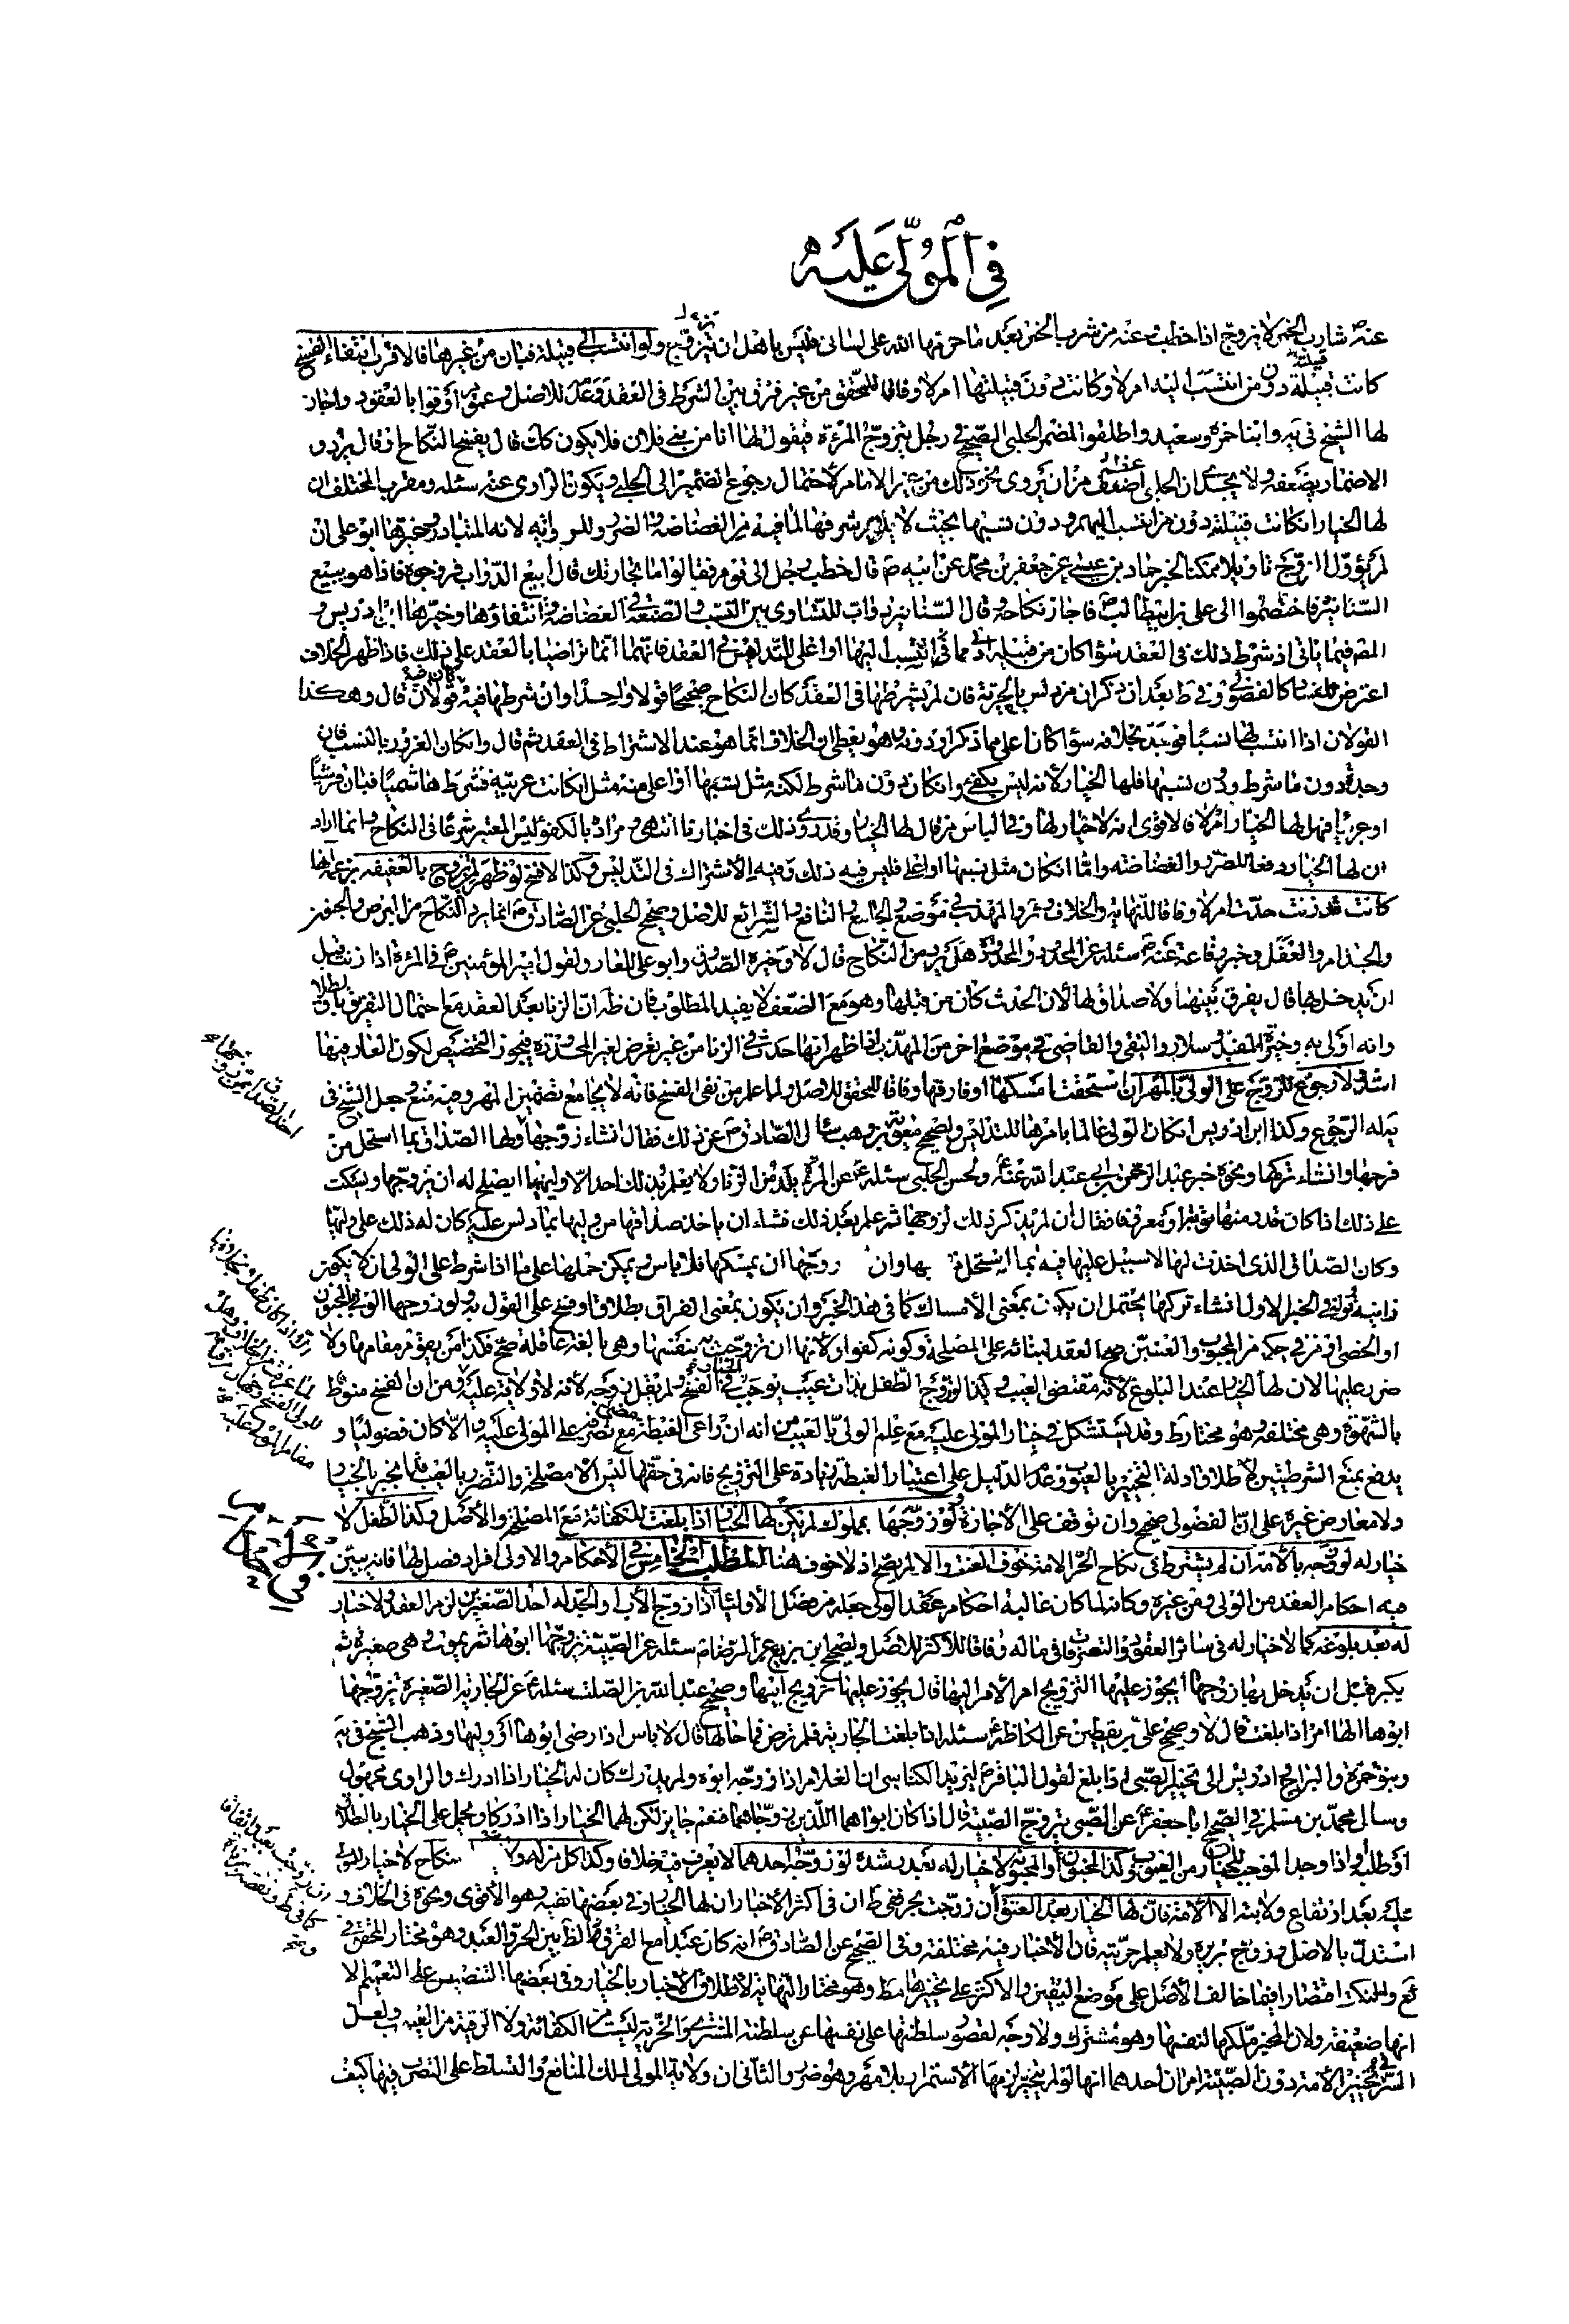 في المولى عليه
عنه ص شارب الخمر لا يزوج اذا خطب وعنه من شرب الخمر بعد ما حرمها الله على لساني فليس باهل ان يزوج ولو انتسب الى قبيلة فبان من غيرها فالاقرب انتفاء الفسخ
كانت قبيلته دون من انتسب اليه ام لا وكانت دون قبيلتها ام لا وفاقا للمحقق من غير فرق بين الشرط في العقد وعدمه للاصل وعموم اوفوا بالعقود واجاز
لها الشيخ في يه وابنا حمزة وسعيد واطلقوا لمضمر الحلبي الصحيح في رجل يتزوج المرءة فيقول لها انا من بني فلان فلا يكون كك قال يفسخ النكاح او قال يرد و
الاضمار يضعفه ولا يجدي ان الحلبي اضعف من ان يروي نحو ذلك من غير الامام لاحتمال رجوع الضمير الى الحلبي ويكون الراوي عنه سئله ومقرب المختلف ان
لها الخيار ان كانت قبيلته دون من انتسب اليهم ودون نسبها بحيث لا يلايم شرفها لما فيه من الغضاضة والضرر وللرواية لانه المتبادر وخيرها ابو علي ان
لم يؤول الزوج تاويلا ممكنا لخبر حماد بن عيسى عن جعفر بن محمد عن ابيه ع قال خطب رجل الى قوم فقالوا ما تجارتك قال ابيع الدواب فزوجوه فاذا هو يبيع
السنانير فاختصموا الى علي بن ابيطالب ع فاجاز نكاحه وقال السنانير دواب للتساوي بين النسب والصنعة في الغضاضة وانتفاؤها وخيرها ابن ادريس و
المصه فيما ياتي اذ شرط ذلك في العقد سواء كان من قبيلة ادنى مما انتسب اليها او اعلى للتدليس في العقد فانهما انما تراضيا بالعقد على ذلك فاذا ظهر الخلاف
اعترض للعقد كالفضولي وفي ط بعد ان ذكر ان من دلس بالحرية فان لم يشرطها في العقد كان النكاح صحيحا قولا واحدا وان شرطها ففيه قولان قال وهكذا
القولان اذا انتسب لها نسبا فوجد بخلافه سواء كان اعلى مما ذكر او دونه وهو يعطي ان الخلاف انما هو عند الاشتراط في العقد ثم قال وان كان الغرور بالنسب فان
وجد دون ما شرط ودون نسبها فلها الخيار لانه ليس بكفو وان كان دون ما شرط لكنه مثل نسبها او اعلى منه مثل ان كانت عربية فشرط هاشميا فبان قرشيا
او عربيا فهل لها الخيار ام لا فالاقوى انه لا خيار لها وفي الناس من قال لها الخيار وقد روي ذلك في اخبارنا انتهى ومراده بالكفو ليس المعتبر شرعا في النكاح وانما اراد
ان لها الخيار دفعا للضرر والغضاضة واما ان كان مثل نسبها او اعلى فليس فيه ذلك وفيه الاشتراك في التدليس وكذا لا فسخ لو ظهر لمن تزوج بالعفيفة بزعمه انها
كانت قد زنت حدت ام لا وفاقا للنهاية والخلاف وئر والمهذب في موضع والجامع والنافع والشرايع للاصل وصحيح الحلبي عن الصادق ع انما يرد النكاح من البرص والجنون
والجذام والعفل وخبر رفاعة عنه ع سئله عن المحدود والمحدودة هل يرد من النكاح قال لا وخيره الصدوق وابو علي للعار ولقول امير المؤمنين ع في المرءة اذا زنت قبل
ان يدخل بها قال يفرق بينهما ولا صداق لها لان الحدث كان من قبلها وهو مع الضعف لا يفيد المطلوب فان ظه ان الزنا بعد العقد مع احتمال التفريق بالطلاق
وانه اولى به وخيره المفيد وسلار والتقي والقاضي في موضع اخر من المهذب اذا ظهر انها حدت في الزنا من غير تعرض لغير المحدودة فيجوز التخصيص لكون العار فيها
اشد ولا رجوع للزوج على الولي بالمهر ان استحقت امسكها او فارقها وفاقا للمحقق للاصل ولما علم من نفي الفسخ فانه لا يجامع تضمين المهر وفيه منع وجعل الشيخ في
يه له الرجوع وكذا ابن ادريس ان كان الولي عالما بامرها للتدليس ولصحيح معوية بن وهب سال الصادق ع عن ذلك فقال ان شاء زوجها ولها الصداق بما استحل من
فرجها وان شاء تركها ونحوه خبر عبد الرحمن بن ابي عبد الله عنه ع ولحسن الحلبي سئله ع عن المرءة تلد من الزنا ولا يعلم بذلك احد الا وليها ايصلح له ان يزوجها ويسكت
على ذلك اذا كان قد راى منها توبة او معروفا فقال ان لم يذكر ذلك لزوجها ثم علم بعد ذلك فشاء ان ياخذ صداقها من وليها بما دلس عليه كان له ذلك على وليها
وكان الصداق الذي اخذت لها لا سبيل عليها فيه بما استحل من فرجها وان شاء زوجها ان يمسكها فلا باس ويمكن حملها على ما اذا شرط على الولي ان لا يكون
زانية وقوله في الخبر الاول ان شاء تركها يحتمل ان يكون بمعنى الامساك كما في هذا الخبر وان يكون بمعنى الفراق بطلاق او فسخ على القول به ولو زوجها الولي بالمجنون
او الخصي او من في حكمه من المجبوب والعنين صح العقد لبنائه على المصلحة وكونه كفوا ولانها ان تزوجت به بنفسها وهي بالغة عاقلة صح فكذا من يقوم مقامها ولا
ضرر عليها لان لها الخيار عند البلوغ لانه مقتضى العيب وكذا لو زوج الطفل بذات عيب يوجب الفسخ ولم يقل زوجه لانه لا ولاية عليه ومن ان الفسخ منوط
بالشهوة وهي مختلفة وهو مختار ط وقد يستشكل في خيار المولى عليه مع علم الولي بالعيب من انه ان راعى الغبطة مع تصرفه على المولى عليه والا كان فضوليا و
يدفع بمنع الشرطيتين لاطلاق ادلة التخيير بالعيوب وعدم الدليل على اعتبار الغبطة زيادة على التزويج فانه في حقها ليس الا مصلحة والتضرر بالعيب انما يجبر بالخيار
ولا معارض غيره على ان الفضولي صحيح وان توقف على الاجازة ولو زوجها بمملوك لم يكن لها الخيار اذا بلغت للكفائة مع المصلحة والاصل وكذا الطفل لا
خيار له لو زوجه بالامة ان لم يشترط في نكاح الحر الامة خوف العنت والا لم يصح اذ لا خوف هنا المطلب الخامس في الاحكام والاولى افراد فصل لها فانه يبين
فيه احكام العقد من الولي ومن غيره وكانه لما كان غالبه احكام عقد الولي جعله من فصل الاولياء اذا زوج الاب او الجد له احد الصغيرين لزم العقد ولا خيار
له بعد بلوغه كما لا خيار له في سائر العقود والتصرفات في ماله وفاقا للاكثر للاصل ولصحيح ابن بزيع عن الرضا ع سئله عن الصبية يزوجها ابوها ثم يموت وهي صغيرة ثم
يكبر قبل ان يدخل بها زوجها ايجوز عليها التزويج ام الامر اليها قال يجوز عليها تزويج ابيها وصحيح عبد الله بن الصلت سئله ع عن الجارية الصغيرة يزوجها
ابوها الها امر اذا بلغت قال لا وصحيح علي بن يقطين عن الكاظم ع سئله اذا بلغت الجارية فلم ترض فما حالها قال لا باس اذا رضي ابوها او وليها وذهب الشيخ في يه
وبنو حمزة والبراج وادريس الى تخيير الصبي اذا بلغ لقول الباقر ع ليزيد الكناسي ان الغلام اذا زوجه ابوه ولم يدرك كان له الخيار اذا ادرك والراوي مجهول
وسال محمد بن مسلم في الصحيح ابا جعفر ع عن الصبي يتزوج الصبية قال اذا كان ابواهما اللذين زوجاهما فنعم جايز لكن لهما الخيار اذا ادركا ويحمل على الخيار بالطلاق
او طلبه او اذا وجد الموجب للخيار من العيوب وكذا المجنون او المجنونة لا خيار له بعد رشده لو زوجه احدهما لا يعرف فيه خلافا وكذا كل من له ولاية نكاح لا خيار للمولى
عليه بعد ارتفاع ولايته الا الامة فان لها الخيار بعد العتق ان زوجت بحر ففي ط ان في اكثر الاخبار ان لها الخيار وفي بعضها نفيه وهو الاقوى ونحوه في الخلاف و
استدل بالاصل وزوج بريرة ولا يعلم حريته فان الاخبار فيه مختلفة وفي الصحيح عن الصادق ع انه كان عبدا مع الفرق الظ بين الحر والعبد وهو مختار المحقق في
ئع والنكت اقتصارا فيما خالف الاصل على موضع اليقين والاكثر على تخييرها مط وهو مختار النهاية لاطلاق الاخبار بالخيار وفي بعضها التنصيص على التعميم الا
انها ضعيفة ولان المخير ملكها لنفسها وهو مشترك ولا وجه لقصور سلطنتها على نفسها عن سلطنة المشتري والحرية ليست من الكفائة ولا الرقية من العيوب ولعل
السر في تخيير الامة دون الصبية امران احدهما انها لو لم يتخير لزمها الاستمرار بلا مهر وهو ضرر والثاني ان ولاية المولى لملك المنافع والتسلط على التصرف فيها كيف